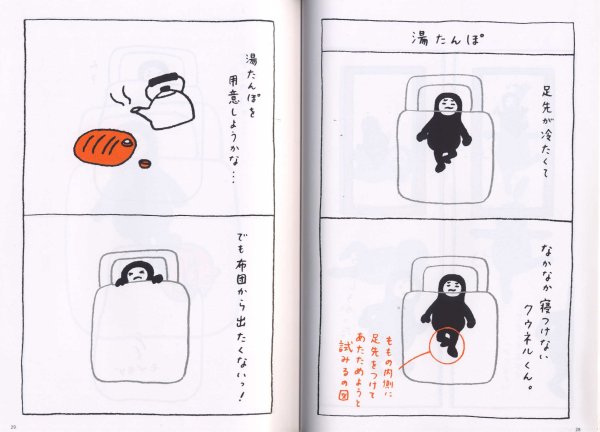 湯たんぽ
足先が冷たくて
なかなか寝つけない
クウネルくん。
ももの内側に
足先をつけて
あたためようと
試みるの図
28
湯たんぽを
用意しようかな…
でも布団から出たくないっ!
29